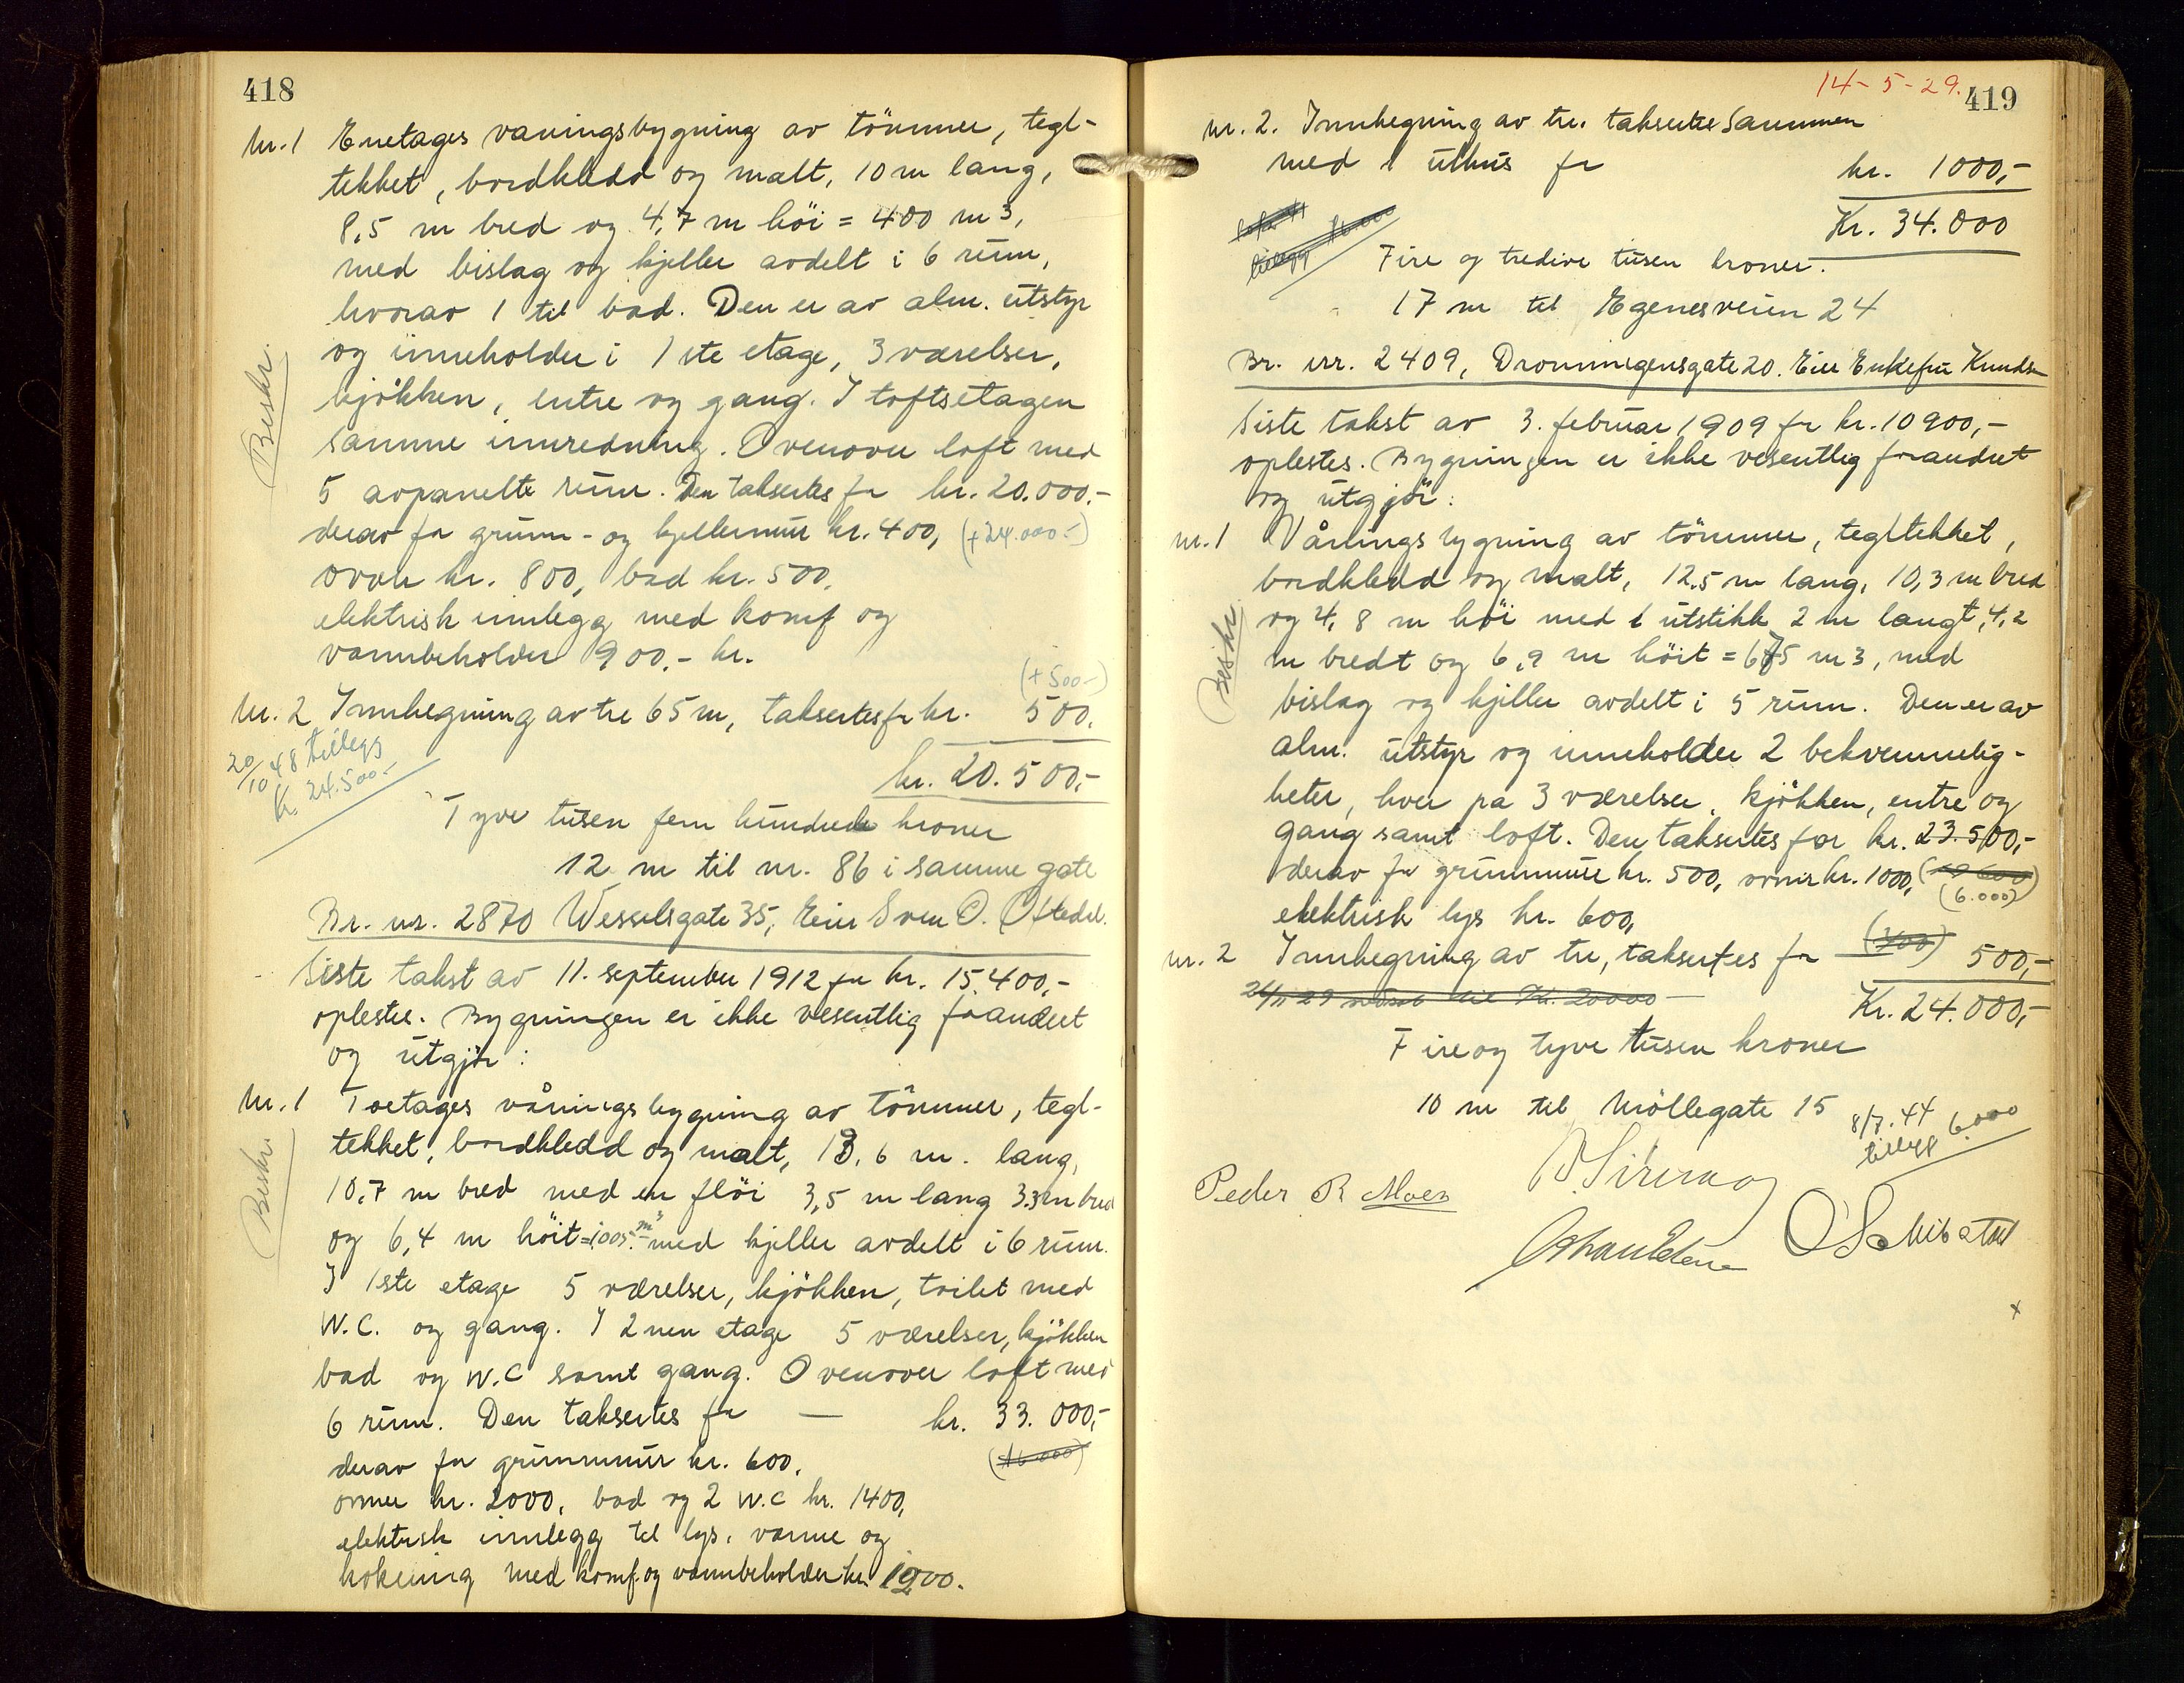 418
nr. 1 Enetages våningsbygning av tömmer, tegl-
tekket, bordkledd og malt, 10 m lang,
8,5 m bred og 4,7 m höi = 400 m3,
med bislag og kjeller avdelt i 6 rum,
hvorav 1 til bad. Den er av alm. utstyr
og inneholder i 1ste etage, 3 værelser,
kjökken, entre og gang. I loftsetagen
samme innredning. Ovenover loft med
5 avpanelte rum. Den taksertes for kr. 20.000.-
derav for grunn- og kjellermur kr. 400, (+24.000-)
ovner kr. 800, bad kr. 500,
elektrisk innlegg med komf og
vannbeholder 900,- kr.
(+500-)
nr. 2 Innhegning av tre 65 m, taksertes for kr. 500.
20/10 48 tillegg
kr. 24.500.-
kr. 20.500,-
Tyve tusen fem hundrede kroner
12 m til nr. 86 i samme gate
Br. nr. 2870 Wesselsgate 35, Eier Sven O. Oftedal.
Siste takst av 11. september 1912 for kr. 15.400,-
oplestes. Bygningen er ikke vesentlig forandret
og utgjör:
nr. 1 Toetages våningsbygning av tömmer, tegl-
tekket, bordkledd og malt, 13,6 m. lang,
10,7 m bred med en flöi 3,5 m lang 3.3 m bred
og 6,4 m höit = 1005 m3 med kjeller avdelt i 6 rum.
I 1ste etage 5 værelser, kjökken, toilet med
W.C. og gang. I 2nen etage 5 værelser, kjökken
bad og W.C samt gang. Ovenover loft med
6 rum. Den taksertes for — kr. 33.000,-
derav for grunnmur kr. 600, (16.000)
ovner kr. 2000, bad og 2 W.C kr. 1400,
elektrisk innlegg til lys, varme og
kokning med komf. og vannbeholder kr. 1900.
Beskr.
Beskr
14-5-29.
419
nr. 2. Innhegning av tre. taksertes sammen
med 1 uthus for kr. 1000,-
Kr. 34.000
tillegg 16.000
Fire og tredive tusen kroner.
17 m til Egenesveien 24
Br. nr. 2409, Dronningensgate 20. Eier Enkefru Knudsen
Siste takst av 3. februar 1909 for kr. 10900,-
oplestes. Bygningen er ikke vesentlig forandret
og utgjör:
nr. 1 Våningsbygning av tömmer, tegltekket,
bordkledd og malt, 12,5 m lang, 10,3 m bred
og 4,8 m höi med 1 utstikk 2 m langt, 4,2
m bredt og 6,9 m höit = 675 m3, med
bislag og kjeller avdelt i 5 rum. Den er av
alm. utstyr og inneholder 2 bekvemmelig-
heter, hver på 3 værelser, kjökken, entre og
gang samt loft. Den taksertes for kr. 23.500,-
derav for grunnmur kr. 500, ovner kr. 1000,
(6.000)
elektrisk lys kr. 600,
nr. 2 Innhegning av tre, taksertes for 500,-
Kr. 24.000,-
Fire og tyve tusen kroner
10 m til Möllegate 15
8/7.44
tillegg 6000
Peder R Moen
Beskr
x